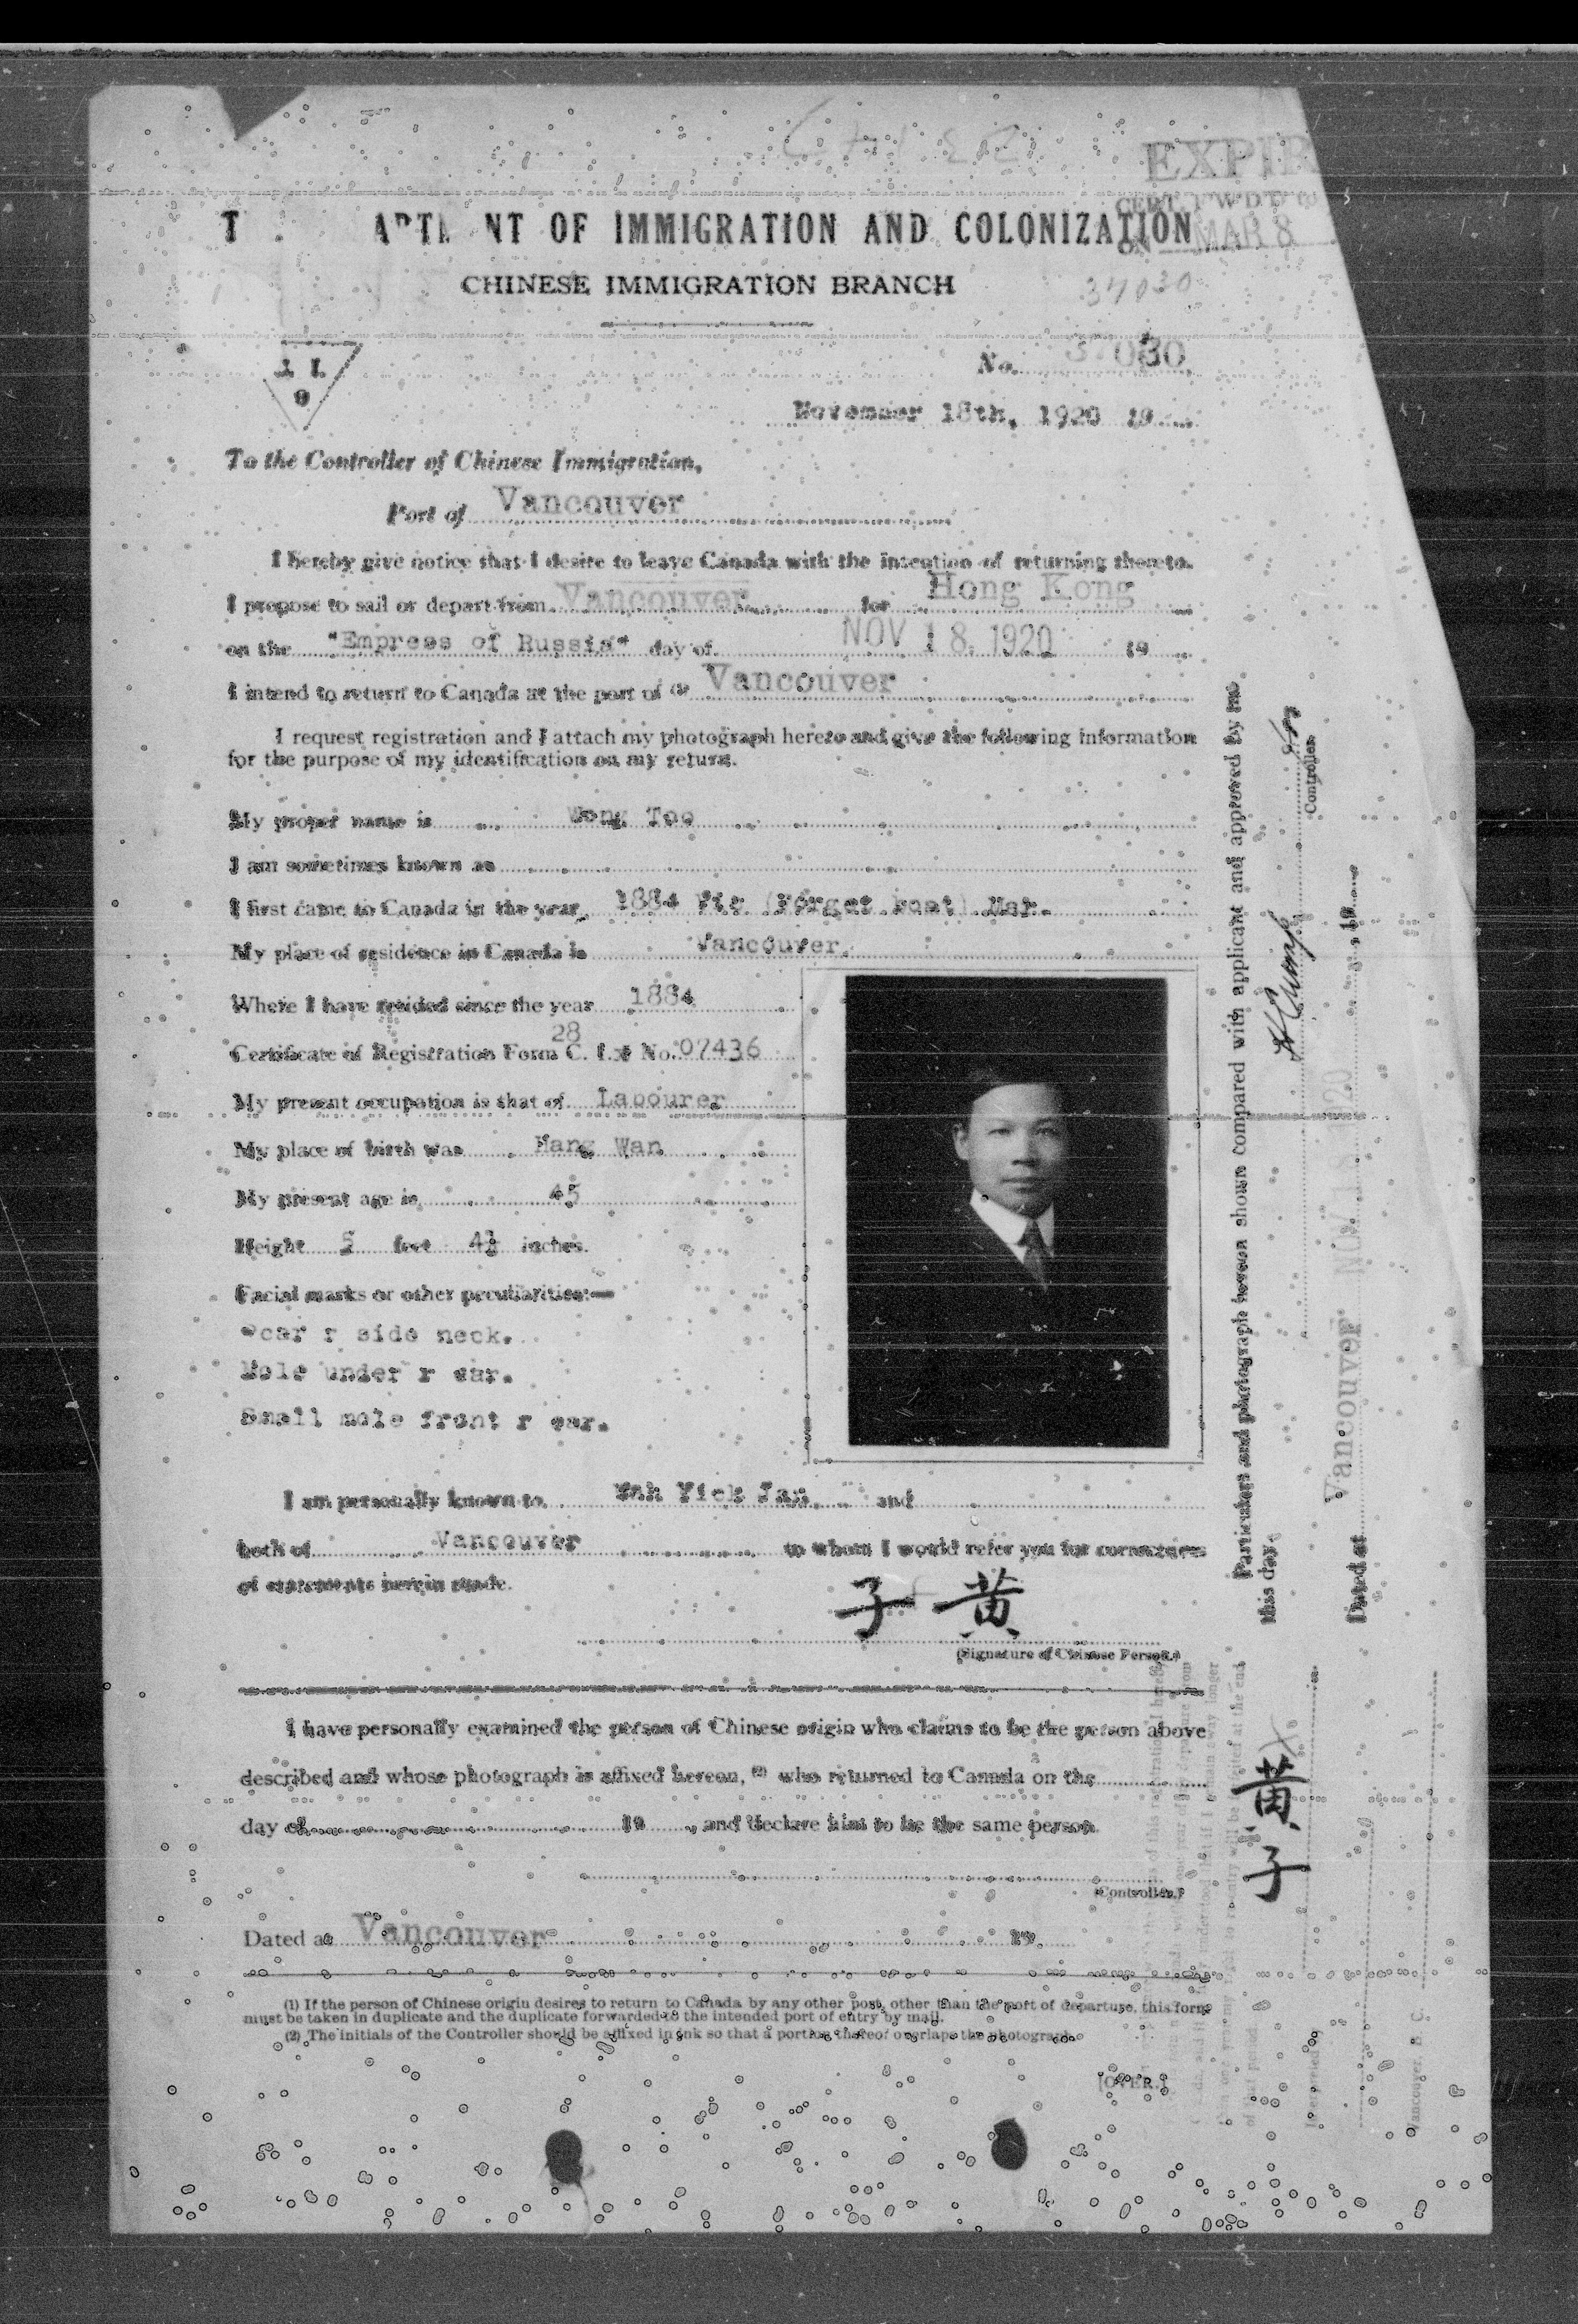 EXPIR
CERT. F'W'D T'O
ON MAR 8
T ARTM NT OF IMMIGRATION AND COLONIZATION
CHINESE IMMIGRATION BRANCH
37030
No. 37030
C I
9
November 18th, 1920 19
To the Controller of Chinese Immigration,
Port of Vancouver
I hereby give notice that I desire to leave Canada with the intention of returning thereto.
I propose to sail or depart from Vancouver for Hong Kong
on the "Empress of Russia" day of NOV 18. 1920 19
I intend to return to Canada at the port of (1) Vancouver
I request registration and I attach my photograph hereto and give the following information
for the purpose of my identification on my return.
My proper name is Wong Too
I am sometimes known as
I first came to Canada in the year 1884 Vic (Forget boat) Mar.
My place of residence in Canada is Vancouver.
Where I have resided since the year 1884
28
Certificate of Registration Form C. I. No. 07436
My present occupation is that of Labourer
My place of birth was Hang Wan
My present age is 45
Height 5 feet 4½ inches.
Facial marks or other peculiarities:—
Scar r side neck.
Mole under r ear.
Small mole front r ear.
I am personally known to Mak Yick Jan and
both of Vancouver to whom I would refer you for correctness
of statements herein made.
子 黄
(Signature of Chinese Person.)
I have personally examined the person of Chinese origin who claims to be the person above
described and whose photograph is affixed hereon, (2) who returned to Canada on the
day of 19 , and declare him to be the same person.
(Controller.)
Dated at Vancouver 19
(1) If the person of Chinese origin desires to return to Canada by any other port, other than the port of departure, this form
must be taken in duplicate and the duplicate forwarded to the intended port of entry by mail.
(2) The initials of the Controller should be affixed in ink so that a portion thereof overlaps the photograph.
[OVER.]
Particulars and photograph hereon shown compared with applicant and approved by me
this day
Controller.
Dated at Vancouver NOV 18 1920 , 19
黄子
Vancouver, B. C.